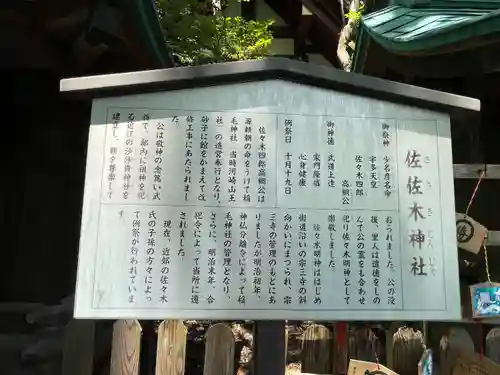 佐佐木神社
さ さ き じんじゃ
御祭神 少名彦名命
宇多天皇
佐々木四郎
高綱公
御神徳 武道上達
家門隆盛
心身健康
例祭日 十月十九日
佐々木四郎高綱公は
源頼朝の命をうけて稲
毛神社(当時河崎山王
社)の造営奉行となり、
砂子に館をかまえて改
修工事にあたられまし
た。
公は敬神の念篤い武
将で、邸内に祖神を祀
る近江の沙沙貴神社を
建立し、朝夕尊崇して
おられました。公の没
後、里人は遺徳をしの
んで公の霊をも合わせて
祀り佐々木明神として
崇敬しました。
佐々木明神ははじめ
街道沿いの宗三寺の斜
向かいにまつられ、宗
三寺の管理のもとにあ
りましたが明治初年、
神仏分離令によって稲
毛神社の管理となり、
さらに、明治末年、合
祀令によって当所に遷
されました。
現在、近郊の佐々木
氏の子孫の方々によっ
て例祭が行われていま
す。